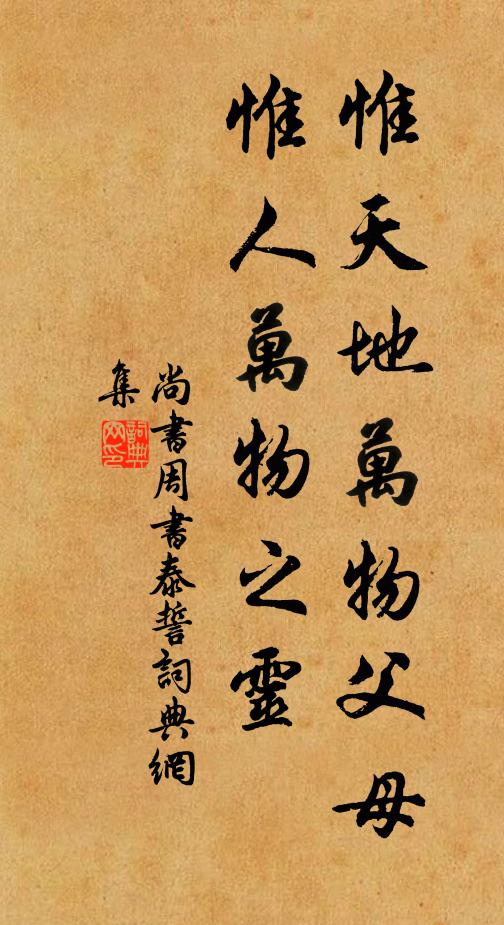 惟天地萬物父母
惟人萬物之靈
尚書周書泰誓詞典網
集
詞典
网印